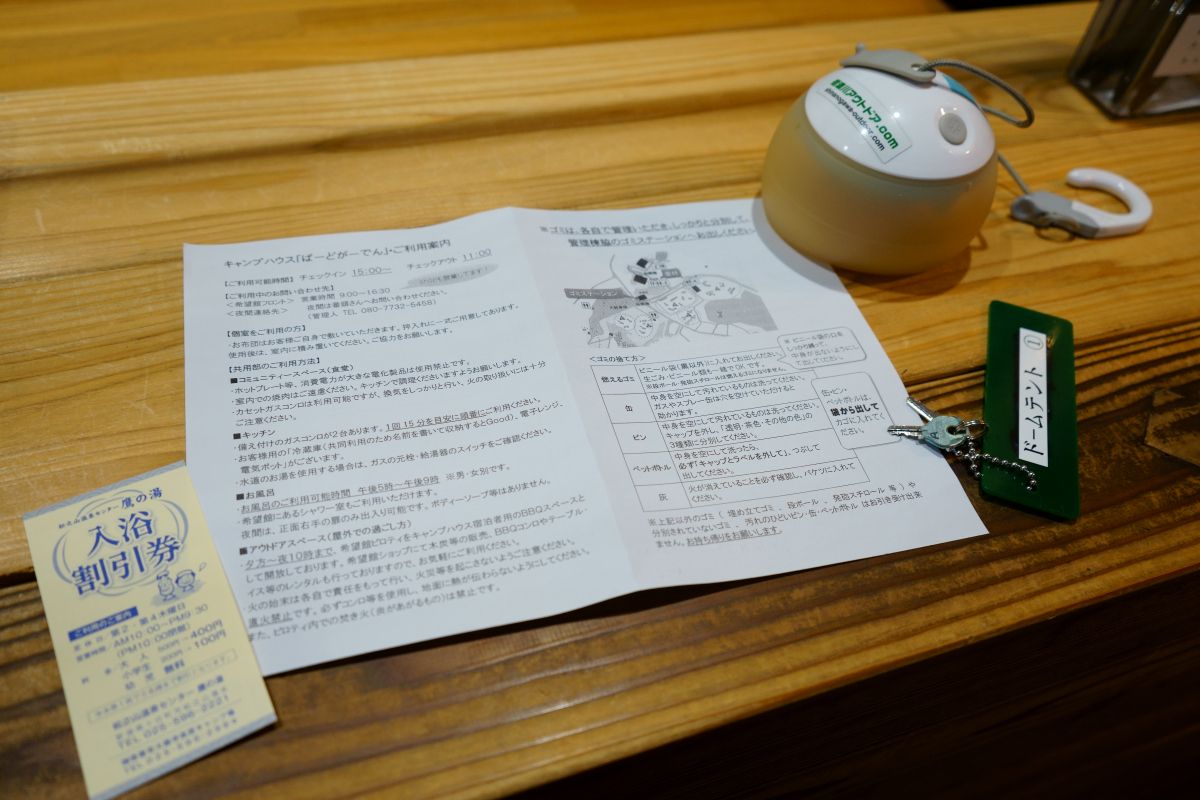 キャンプハウス「ばーどがーでん」・ご利用案内
【ご利用可能時間】 チェックイン 15:00～ チェックアウト 11:00
【ご利用中のお問い合わせ先】
＜希望館フロント＞ 営業時間 9:00～16:30
＜夜間連絡先＞ 夜間は番頭さんへお問い合わせください。
(管理人 TEL 080-7732-5458)
【個室をご利用の方】
・お布団はお客様ご自身で敷いていただきます。押入れに一式ご用意してあります。
使用後は、室内に積み置いてください。ご協力をお願いします。
【共用部のご利用方法】
■コミュニティースペース(食堂)
・ホットプレート等、消費電力が大きな電化製品は使用禁止です。
・室内での焼肉はご遠慮ください。キッチンで調理くださいますようお願いします。
・カセットガスコンロは利用可能ですが、換気をしっかりと行い、火の取り扱いには十分
ご注意ください。
■キッチン
・備え付けのガスコンロが2台あります。1回15分を目安に順番にご利用ください。
・お客様用の「冷蔵庫(共同利用のため名前を書いて収納するとGood)、電子レンジ、
電気ポット」がございます。
・水道のお湯を使用する場合は、ガスの元栓・給湯器のスイッチをご確認ください。
■お風呂
・お風呂のご利用可能時間 午後5時～午後9時 ※男・女別です。
・希望館にあるシャワー室もご利用いただけます。ボディーソープ等はありません。
夜間は、正面右手の扉のみ出入り可能です。
■アウトドアスペース(屋外での過ごし方)
・夕方～夜10時まで、希望館ピロティをキャンプハウス宿泊者用のBBQスペースと
して開放しております。希望館ショップにて木炭等の販売、BBQコンロやテーブル・
イス等のレンタルも行っておりますので、お気軽にご利用ください。
・火の始末は各自で責任をもって行い、火災等を起こさないようご注意ください。
直火禁止です。必ずコンロ等を使用し、地面に熱が伝わらないようにしてください。
また、ピロティ内での焚き火(炎があがるもの)は禁止です。
※ゴミは、各自で管理いただき、しっかりと分別して、
管理棟脇のゴミステーションへお出しください
ゴミステーション
＜ゴミの捨て方＞
※ビニール袋の口を
しっかり縛って、
中身が出ないようにし
て出してください
燃えるゴミ
ビニール袋(黒以外)に入れてお出しください。
生ごみ・ビニール類も一緒でOKです。
※段ボール・発泡スチロールは燃えるゴミになりません。
缶
中身を空にして汚れているものは洗ってください。
ガスやスプレー缶は穴を空けていただけると
助かります。
ビン
中身を空にして汚れているものは洗ってください。
キャップを外し、「透明・茶色・その他の色」の
3種類に分別してください。
ペットボトル
中身を空にして洗ったら、
必ず「キャップとラベルを外して」、つぶして
出してください。
灰
火が消えていることを必ず確認し、バケツに入れて
ください。
缶・ビン・
ペットボトルは、
袋から出して
カゴに入れてく
ださい。
※上記以外のゴミ(埋め立てゴミ、段ボール、発砲スチロール等)や
分別されていないゴミ、汚れのひどいビン・缶・ペットボトルはお引き受け出来
ません。お持ち帰りをお願いします。
アウトドア.com
shinanogawa-outdoor.com
ドームテント①
松之山温泉センター 鷹の湯
入浴
割引券
ご利用のご案内
定休日 第2・第4木曜日
営業時間 AM10:00～PM9:30
(PM10:00閉館)
料金 大人 500円→400円
小学生 200円→100円
幼児 無料
松之山温泉センター 鷹の湯
TEL 025-596-2221